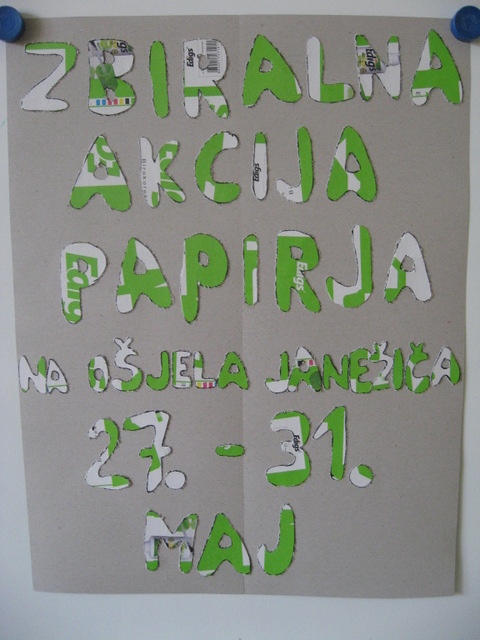 ZBIRALNA
AKCIJA
PAPIRJA
NA OŠJELA JANEŽIČA
27. - 31.
MAJ